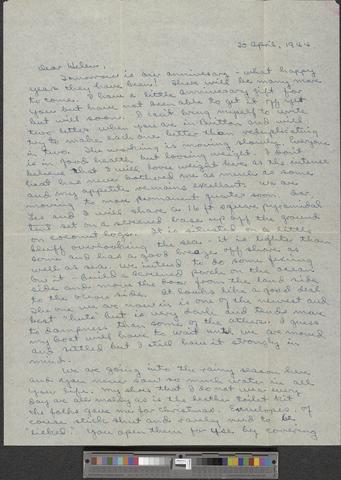 20 April, 1944
Dear Helen,
Tomorrow is our anniversary - what happy
years they have been! There will be many more
to come. I have a little anniversary gift for
you but have not been able to get it off yet
but will soon. I can't bring myself to write
two letters when you are in Britton and will
try to make each one better than reduplicating
in two. The working is moving slowly. Everyone
is in good health but loosing weight. I don't
believe that I will loose weight here as the intense
heat has never bothered me as much as some
and my appetite remains excellent. We are
moving to more permanent quarters soon. Doc
Lee and I will share a 16 ft square pyramidal
tent set on a screened base up off the ground
on coconut logs. It is situated on a little
bluff overlooking the sea - it is lighter than
some and has a good breeze off shore as
well as sea. I intend to do some fixing
on it - build a screened porch on the ocean
side and move the door from the land side
to the ocean side. It looks like a good deal
The one we are now in is one of the newest and
best huts but is very dark and tends more
to dampness than some of the others. I guess
my boat will have to wait until we are moved
and settled but I still have it strongly in
mind.
We are going into the rainy season here
and you never saw so much water in all
your life. My shoes that I do not wear every
day are all moldy as is the leather toilet kit
the folks gave me for Christmas. Envelopes, of
course stick shut and rarely need to be
licked. You open them for use by covering